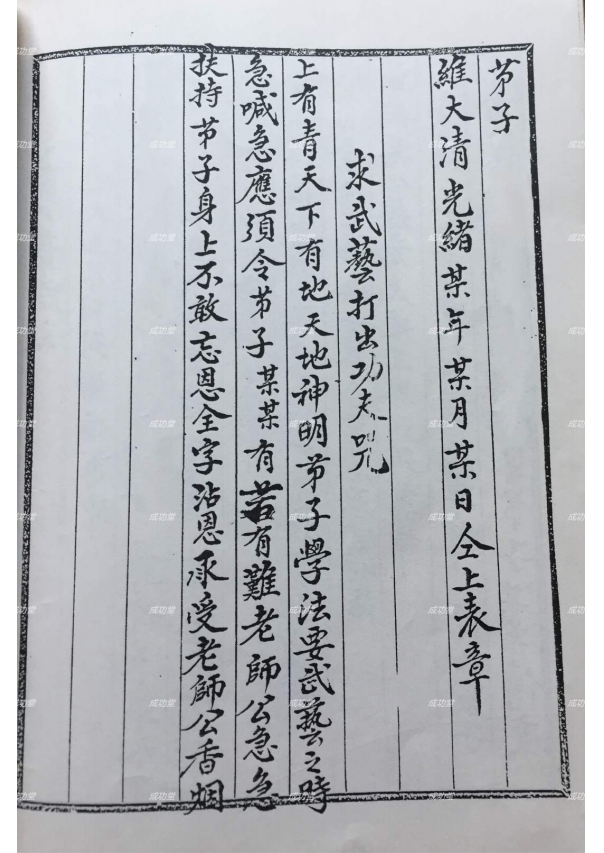 弟子
維大清光緒某年某月某日仝上表章
求武藝打出功夫咒
上有青天下有地天地神明弟子學法要武藝之時
急喊急應須令弟子某某有若有難老師公急急
扶持弟子身上不敢忘恩全字沾恩承受老師公香烟
成功堂